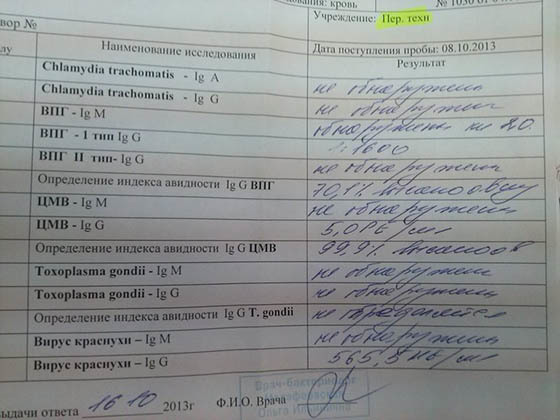 дования: кровь № 1030 от 0
Учреждение: Пер. техн
вор №
Наименование исследования
Дата поступления пробы: 08.10.2013
Результат
Chlamydia trachomatis - Ig A не обнаружены
Chlamydia trachomatis - Ig G не обнаружены
ВПГ - Ig M обнаружены
ВПГ - I тип Ig G 1:1600
ВПГ II тип- Ig G не обнаружены
Определение индекса авидности Ig G ВПГ 70,1%
ЦМВ - Ig M не обнаружены
ЦМВ - Ig G 5,0
Определение индекса авидности Ig G ЦМВ 99,9%
Toxoplasma gondii - Ig M не обнаружены
Toxoplasma gondii - Ig G не обнаружены
Определение индекса авидности Ig G T. gondii не определяется
Вирус краснухи – Ig M не обнаружены
Вирус краснухи – Ig G 565,3 МЕ/мл
выдачи ответа 16 10 2013г Ф.И.О. Врача
Врач-бактериолог
Ольга